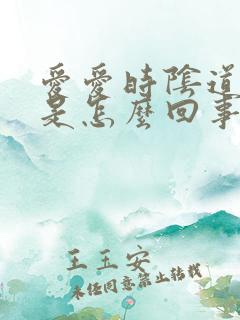 愛愛時陰道
是怎麼回事
王玉安
未經同意禁止轉載